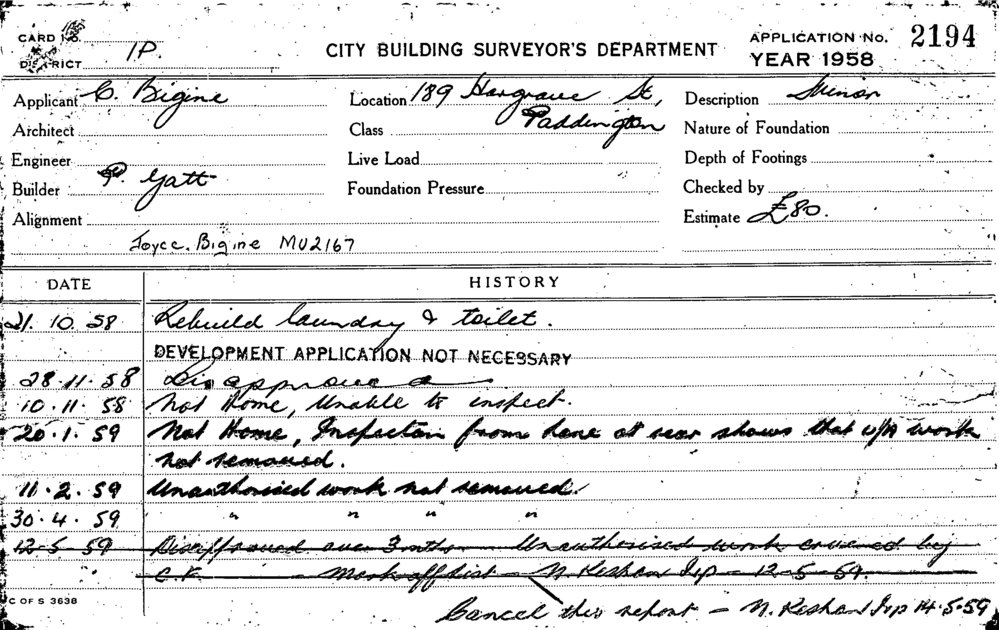 CARD No.
DISTRICT 1P.
CITY BUILDING SURVEYOR'S DEPARTMENT
APPLICATION No. 2194
YEAR 1958
Applicant C. Bigine
Location 189 Hargrave St,
Paddington
Description Minor
Architect
Class
Nature of Foundation
Engineer
Live Load
Depth of Footings
Builder P. Gatt
Foundation Pressure
Checked by
Alignment
Estimate £80.
Joyce. Bigine MU2167
DATE HISTORY
21. 10. 58 Rebuild laundry & toilet.
DEVELOPMENT APPLICATION NOT NECESSARY
28. 11. 58 Disapproved
10. 11. 58 Not Home, Unable to inspect.
20. 1. 59 Not Home, Inspection from Lane at rear shows that u/a work
not removed.
11. 2. 59 Unauthorised work not removed.
30. 4. 59 " " " "
12-5-59 Disapproved over 3 mths - Unauthorised work covered by
C.F. - Mark off list - N. Keshan Isp - 12-5-59.
Cancel this report - N. Keshan Isp 14.5.59
C OF S 3638